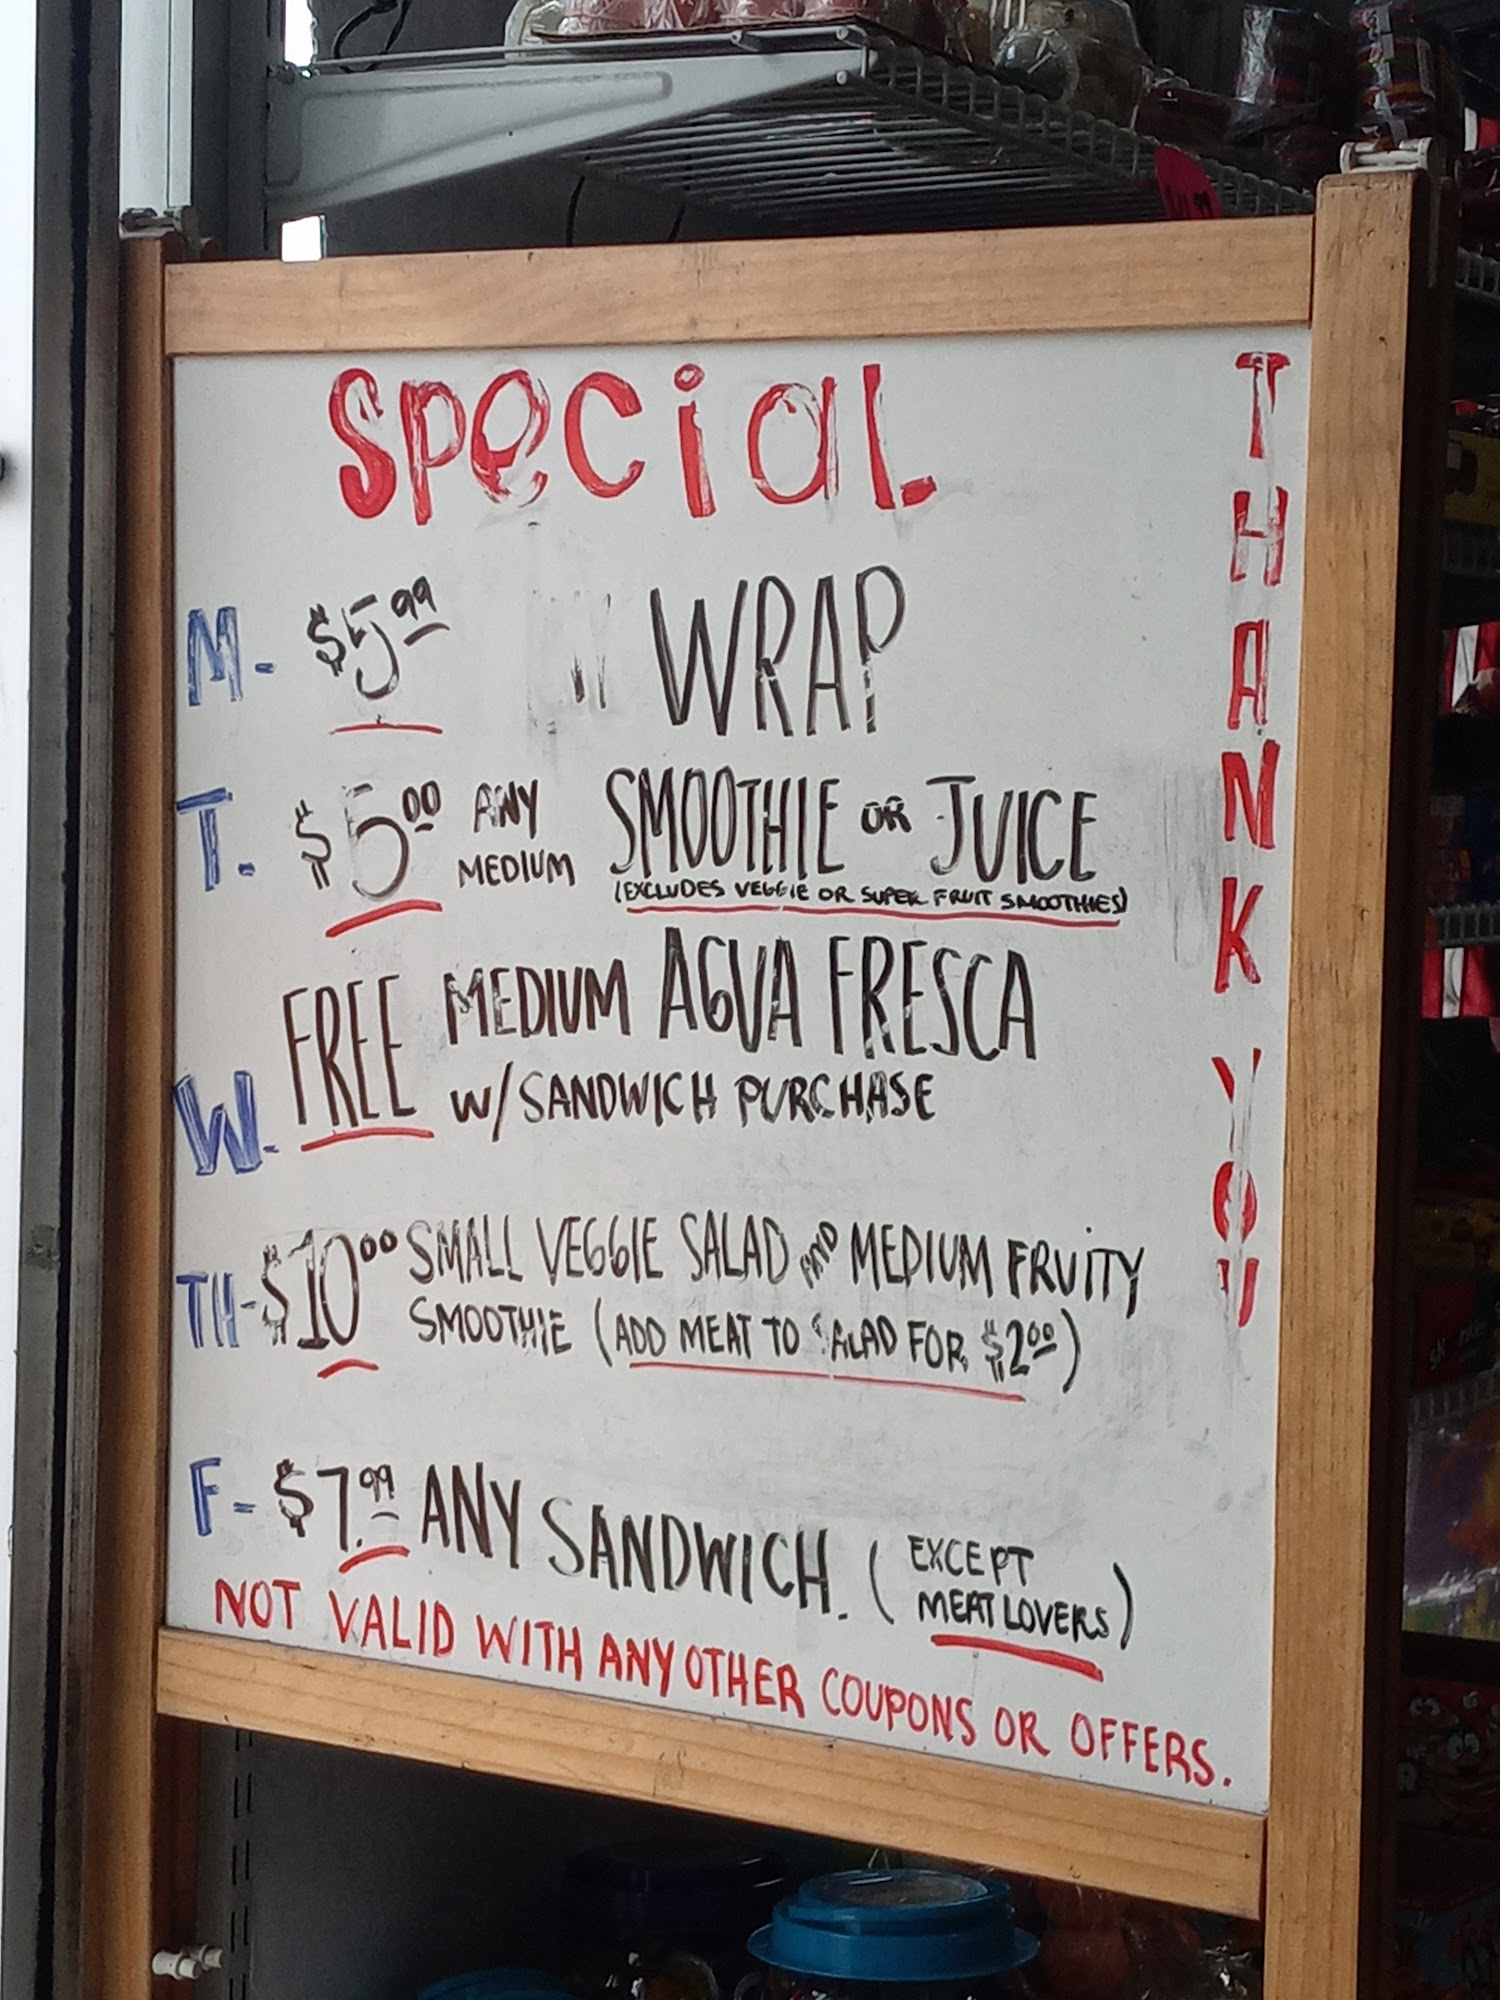 Special
M- $5.99 WRAP
T. $5.00 ANY MEDIUM SMOOTHIE OR JUICE
(EXCLUDES VEGGIE OR SUPER FRUIT SMOOTHIES)
W. FREE MEDIUM AGUA FRESCA
W/SANDWICH PURCHASE
TH-$10.00 SMALL VEGGIE SALAD AND MEDIUM FRUITY
SMOOTHIE (ADD MEAT TO SALAD FOR $2.00)
F- $7.99 ANY SANDWICH. (EXCEPT
MEATLOVERS)
NOT VALID WITH ANY OTHER COUPONS OR OFFERS.
THANK YOU